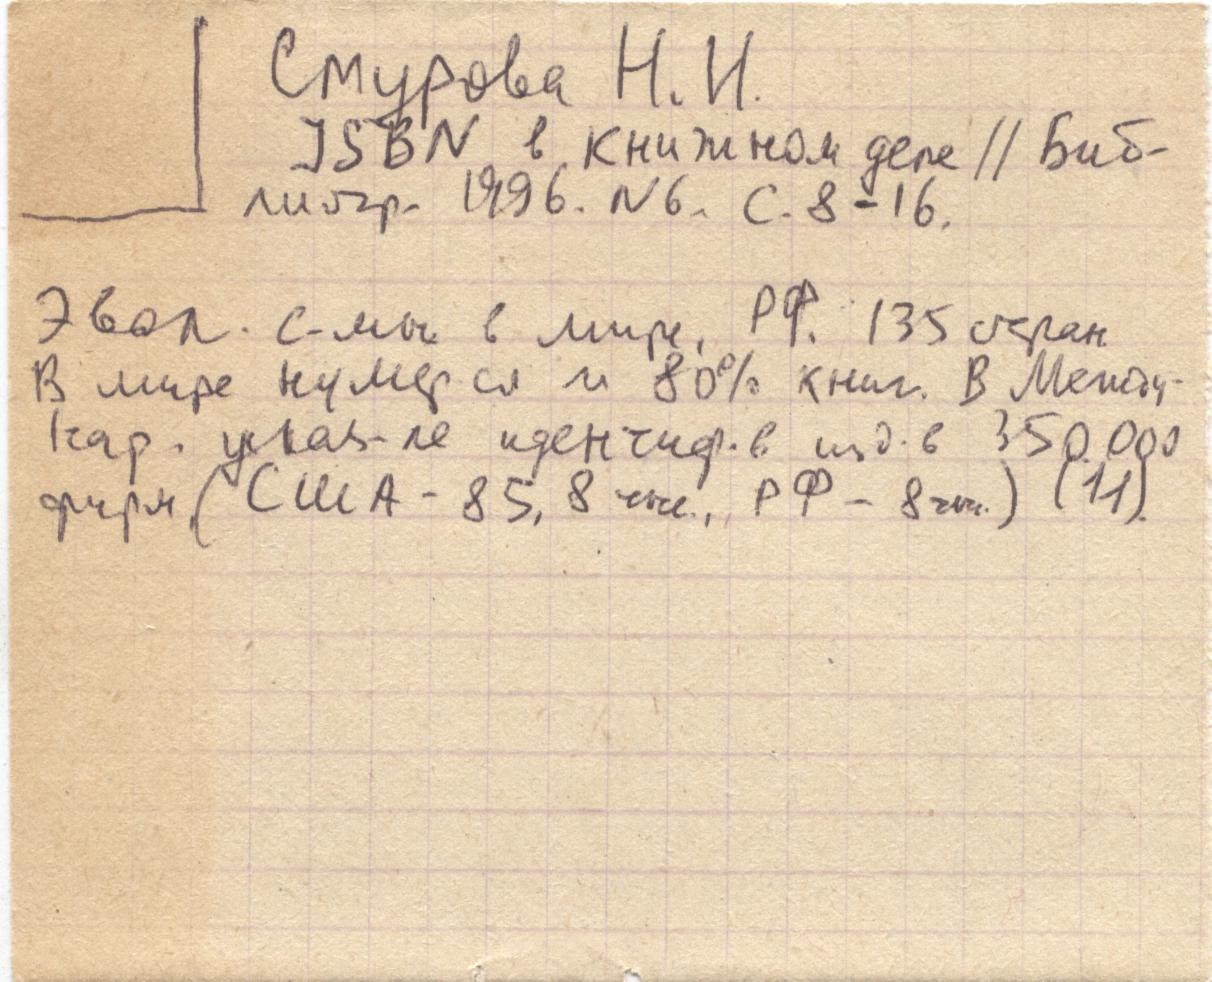 Смурова Н. И.
ISBN в книжном деле // Биб-
лиогр. 1996. N6. С. 8-16.
Эвол. с-мы в мире, РФ. 135 стран
В мире нумер-ся 80% книг. В Между-
нар. указ-ле идентиф-в изд-в 350.000
фирм (США - 85,8 тыс., РФ - 8 тыс.) (11).